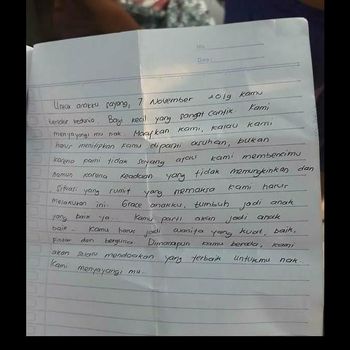 No :
Date :
Untuk anakku sayang, 7 November 2019 kamu
hendar kedunia. Bayi kecil yang sangat cantik. Kami
menyayangi mu nak. Maafkan kami, kalau kami
harus menitipkan kamu dipanti asuhan, bukan
karena kami tidak sayang atau kami membencimu
Namun karena keadaan yang tidak memungkinkan dan
Situasi yang rumit yang memaksa kami harus
melakukan ini. Grace anakku, tumbuh jadi anak
yang baik ya. Kamu pasti akan jadi anak
baik. Kamu harus jadi wanita yang kuat, baik,
pintar dan berguna. Dimanapun kamu berada, kami
akan selalu mendoakan yang terbaik untukmu nak.
Kami menyayangi mu...